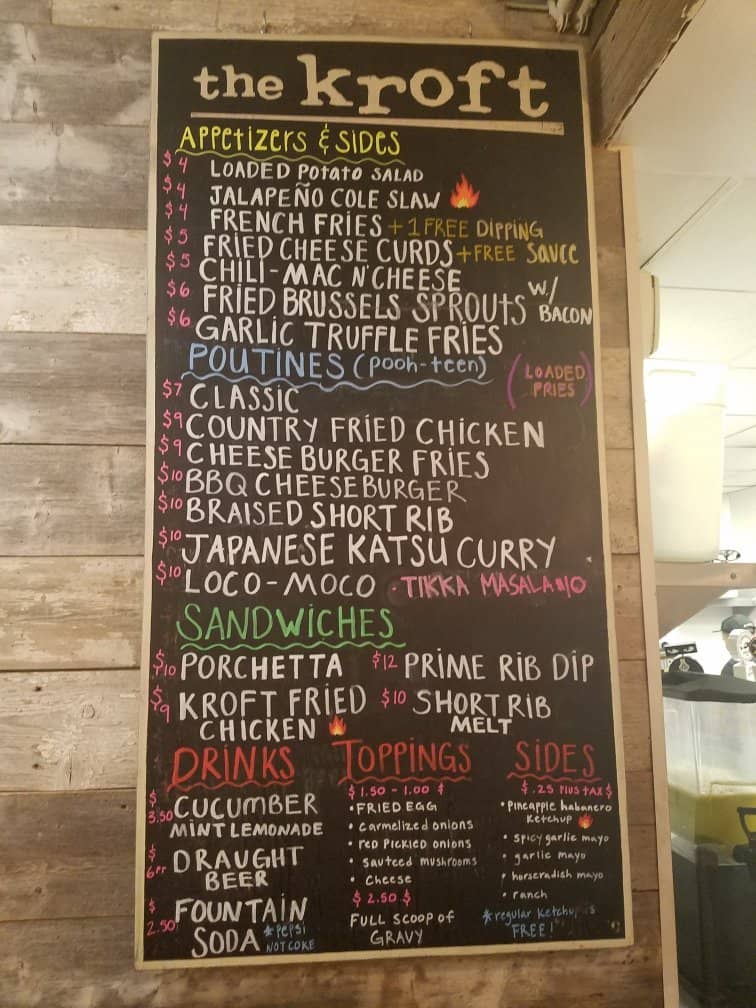 the kroft
APPETIZERS & SIDES
$4 LOADED POTATO SALAD
$4 JALAPEÑO COLE SLAW
$4 FRENCH FRIES + 1 FREE DIPPING
$5 FRIED CHEESE CURDS + FREE SAUCE
$5 CHILI-MAC N'CHEESE
$6 FRIED BRUSSELS SPROUTS W/ BACON
$6 GARLIC TRUFFLE FRIES
POUTINES (pooh-teen) (LOADED FRIES)
$7 CLASSIC
$9 COUNTRY FRIED CHICKEN
$9 CHEESE BURGER FRIES
$10 BBQ CHEESEBURGER
$10 BRAISED SHORT RIB
$10 JAPANESE KATSU CURRY
$10 LOCO-MOCO • TIKKA MASALA $10
SANDWICHES
$10 PORCHETTA $12 PRIME RIB DIP
$9 KROFT FRIED CHICKEN $10 SHORT RIB MELT
DRINKS
$3.50 CUCUMBER
MINT LEMONADE
$6 DRAUGHT
BEER
$2.50 FOUNTAIN
SODA *PEPSI
NOT COKE
TOPPINGS
$1.50 - 1.00 $
• FRIED EGG
• carmelized onions
• red pickled onions
• sauteed mushrooms
• Cheese
$ 2.50 $
FULL SCOOP OF
GRAVY
SIDES
$.25 PLUS TAX $
• Pineapple habanero
ketchup
• spicy garlic mayo
• garlic mayo
• horseradish mayo
• ranch
*regular ketchup is
FREE!